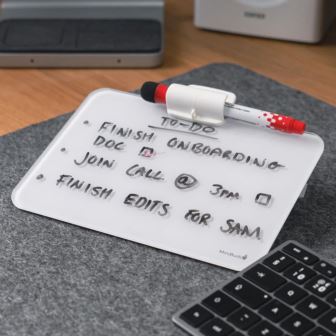 TO-DO
• FINISH ONBOARDING
DOC
• JOIN CALL @ 3PM
• FINISH EDITS FOR SAM